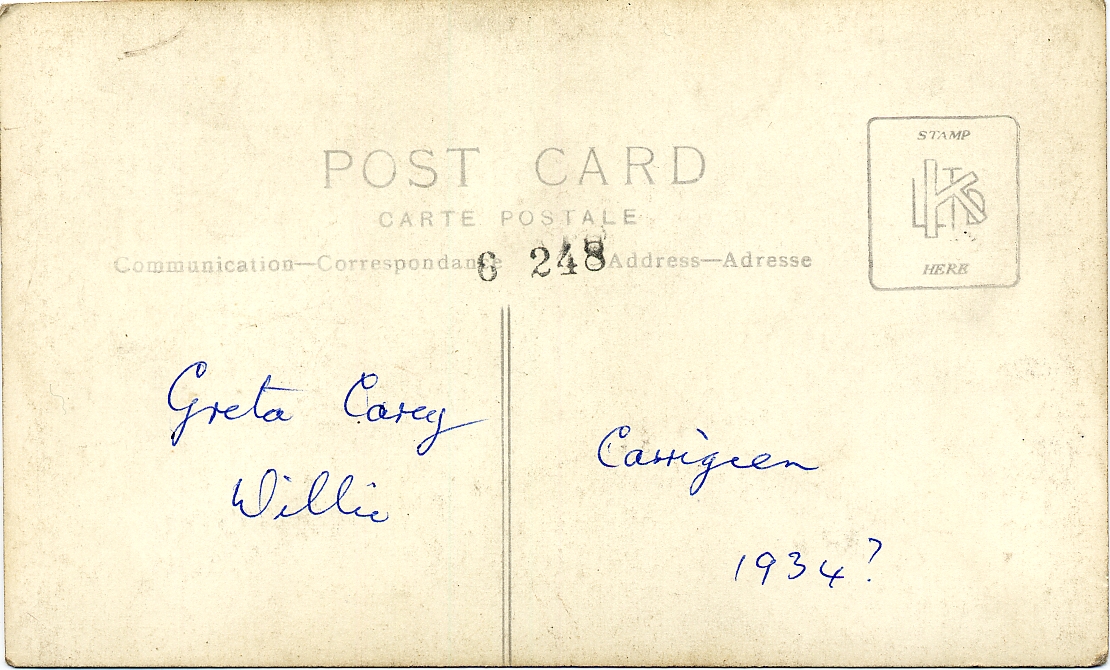 POST CARD
CARTE POSTALE
Communication—Correspondance
Address—Adresse
6 248
STAMP
HERE
Greta Carey
Willie
Carrigeen
1934?